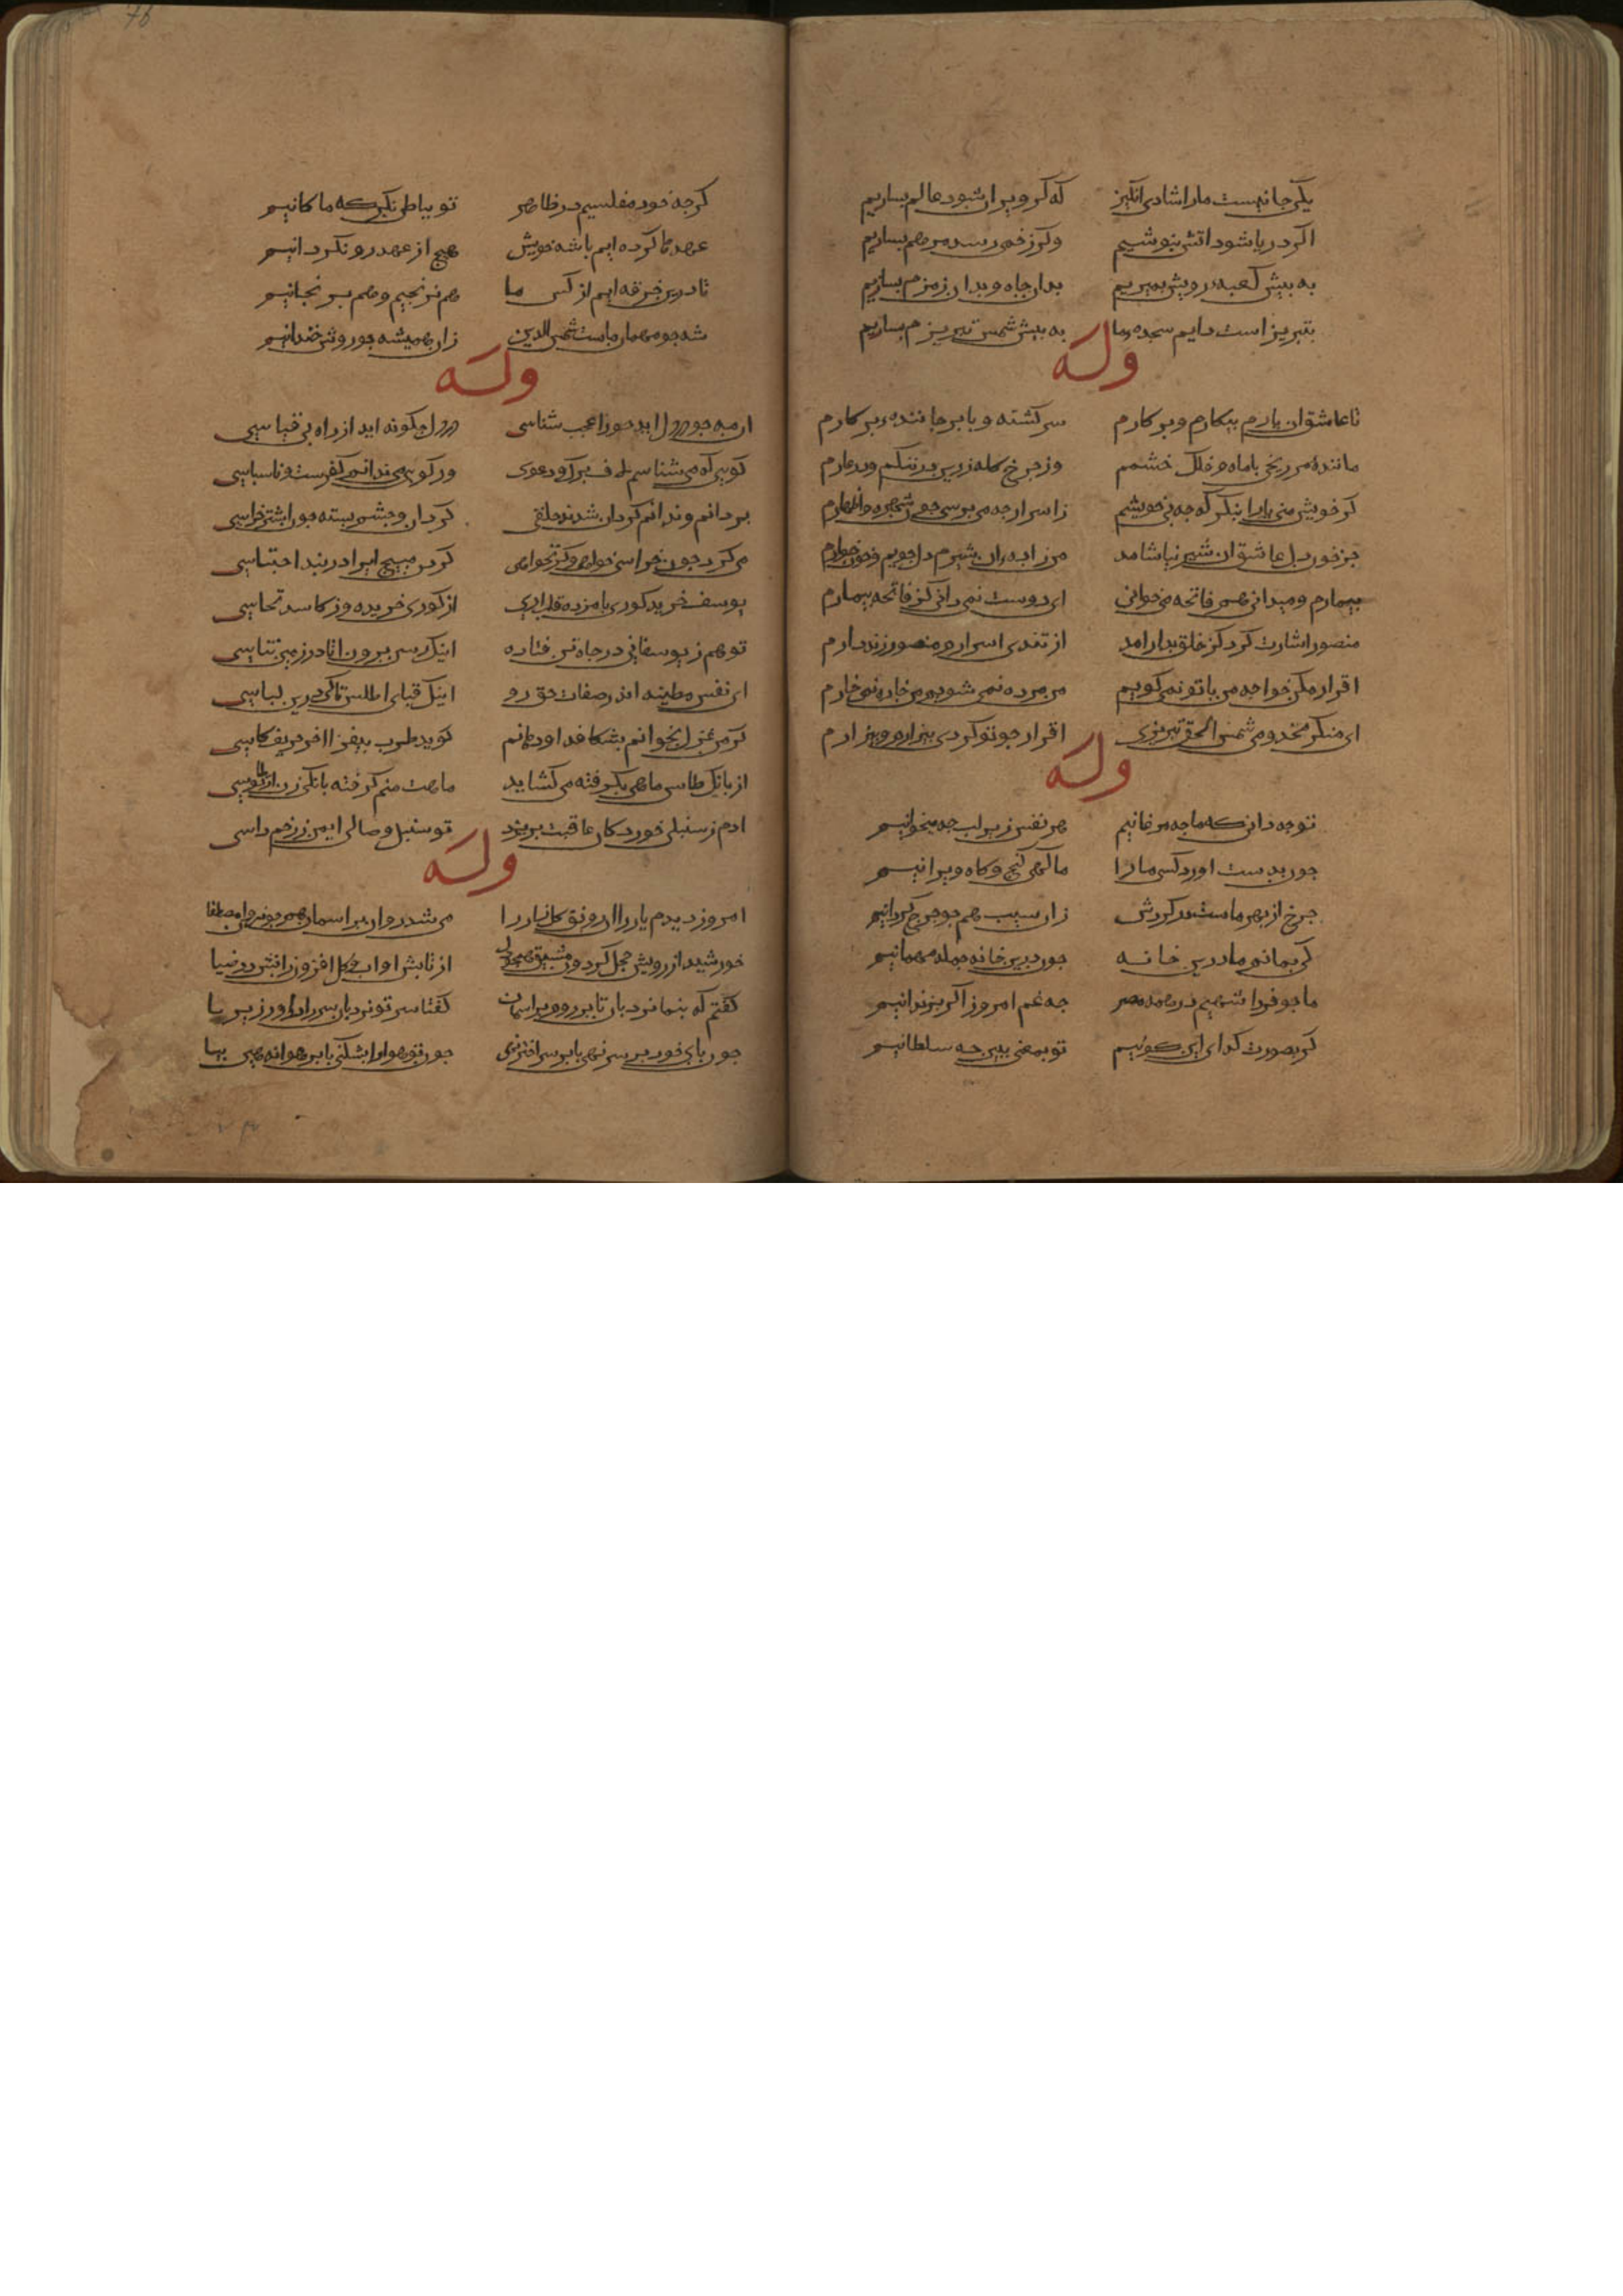 یکی جا نیست ما را شادی انگیز که کر ویران شود عالم بسازیم
اکر دریا شود اتش بنوشیم وکر زخمی رسد مرهم بسازیم
به پیش کعبه رویش بمیریم بدان جاه و بدان زمزم بسازیم
بتبریز است دایم سجده ما به بیش شمس تبریزم بسازیم
وله
تا عاشق ان یارم بیکارم و بر کارم سرکشته و بابرجا ننده برکارم
ماننده مریخی با ماه و فلک خشمم وز جرخ کله زرین در ننکم و در عارم
کر خویش منی یارا بنکر که جه بی خویشم زاسرار جه می برسی جون شهره و اظهارم
جز خون دل عاشق ان شیر نیاشامد من زاده ان شیرم دلجویم و خون خوارم
بیمارم و میدانی هم فاتحه می خوانی ای دوست نمی دانی کز فاتحه بیمارم
منصور اشارت کرد کز خلق بدار امد از تندی اسرارم منصور زند دارم
اقرار مکن خواجه من با تو نمی کویم من مرده نمی شویم من خاره نمی خارم
ای منکر مخدومی شمس الحق تبریزی اقرار جو تو کردی بیزارم و بیزارم
وله
تو جه دانی که ما جه مرغانیم هر نفس زیر لب جه میخوانیم
جون بدست اورد کسی ما را ما کهی کنج و کاه ویرانیم
جرخ از بهر ماست در کردش زان سبب همجو جرخ کردانیم
کی بمانیم ما درین خانه جون درین خانه جمله مهمانیم
ما جو فردا شهیم در همه مصر جه غم امروز اکر بزندانیم
کر بصورت کدای این کوئیم تو بمعنی ببین جه سلطانیم
کرجه خود مفلسیم در ظاهر تو بباطن نکر که ما کانیم
عهدها کرده ایم با شه خویش هیج از عهد رو نکردانیم
تا درین خرقه ایم از کس ما هم نرنجیم و هم نرنجانیم
شه جو مهمان ماست شمس الدین زان همیشه جو روش خندانیم
وله
از مه جو در دل اید جون را عجب شناسی در دل جکونه اید از راه بی قیاسی
کویی که می شناسم لاف بزرک و دعوی ور کویی می ندانم کفرست و ناسباسی
بر دانم و ندانم کردان شدند خلقی کردان و جشم بسته جون اشتر خراسی
می کرد جون خراسی خواهی و کر نخواهی کردن مبیج ایرا در بند احتباسی
یوسف خرید کوری با مزده قلب اری از کوری خریده وز کاسد نحاسی
تو هم ز یوسفانی در جاه تن فتاده اینک رسن برون ا تا در زمین نتاسی
ای نفس مطمینه اندر صفات حق رو اینک قبای اطلس تا کی درین لباسی
کر من غزل بخوانم بشکافد او دهانم کوید طرب بیفزا اخر حریف کاسی
از بانک طاس ماهی بکرفته می کشاید ماهت منم کرفته بانکی زن ار تو طاسی
ادم ز سنبلی خورد کان عاقبت بریزد تو سنبل وصالی ایمن ز زخم داسی
وله
امروز دیدم یار را ان رونق کار را می شد روان بر اسمان همجون روان مصطفا
خورشید از رویش خجل کردون مشبک همجو دل از تابش او اب و کل افزون ز اتش در ضیا
کفتم که بنما نردبان تا بر روم بر اسمان کفتا سر تو نردبان سر را در اور زیر با
جون بای خود بر سر نهی با بر سر اختر نهی جون تو هوا را بشکنی با بر هوا نه هین بیا